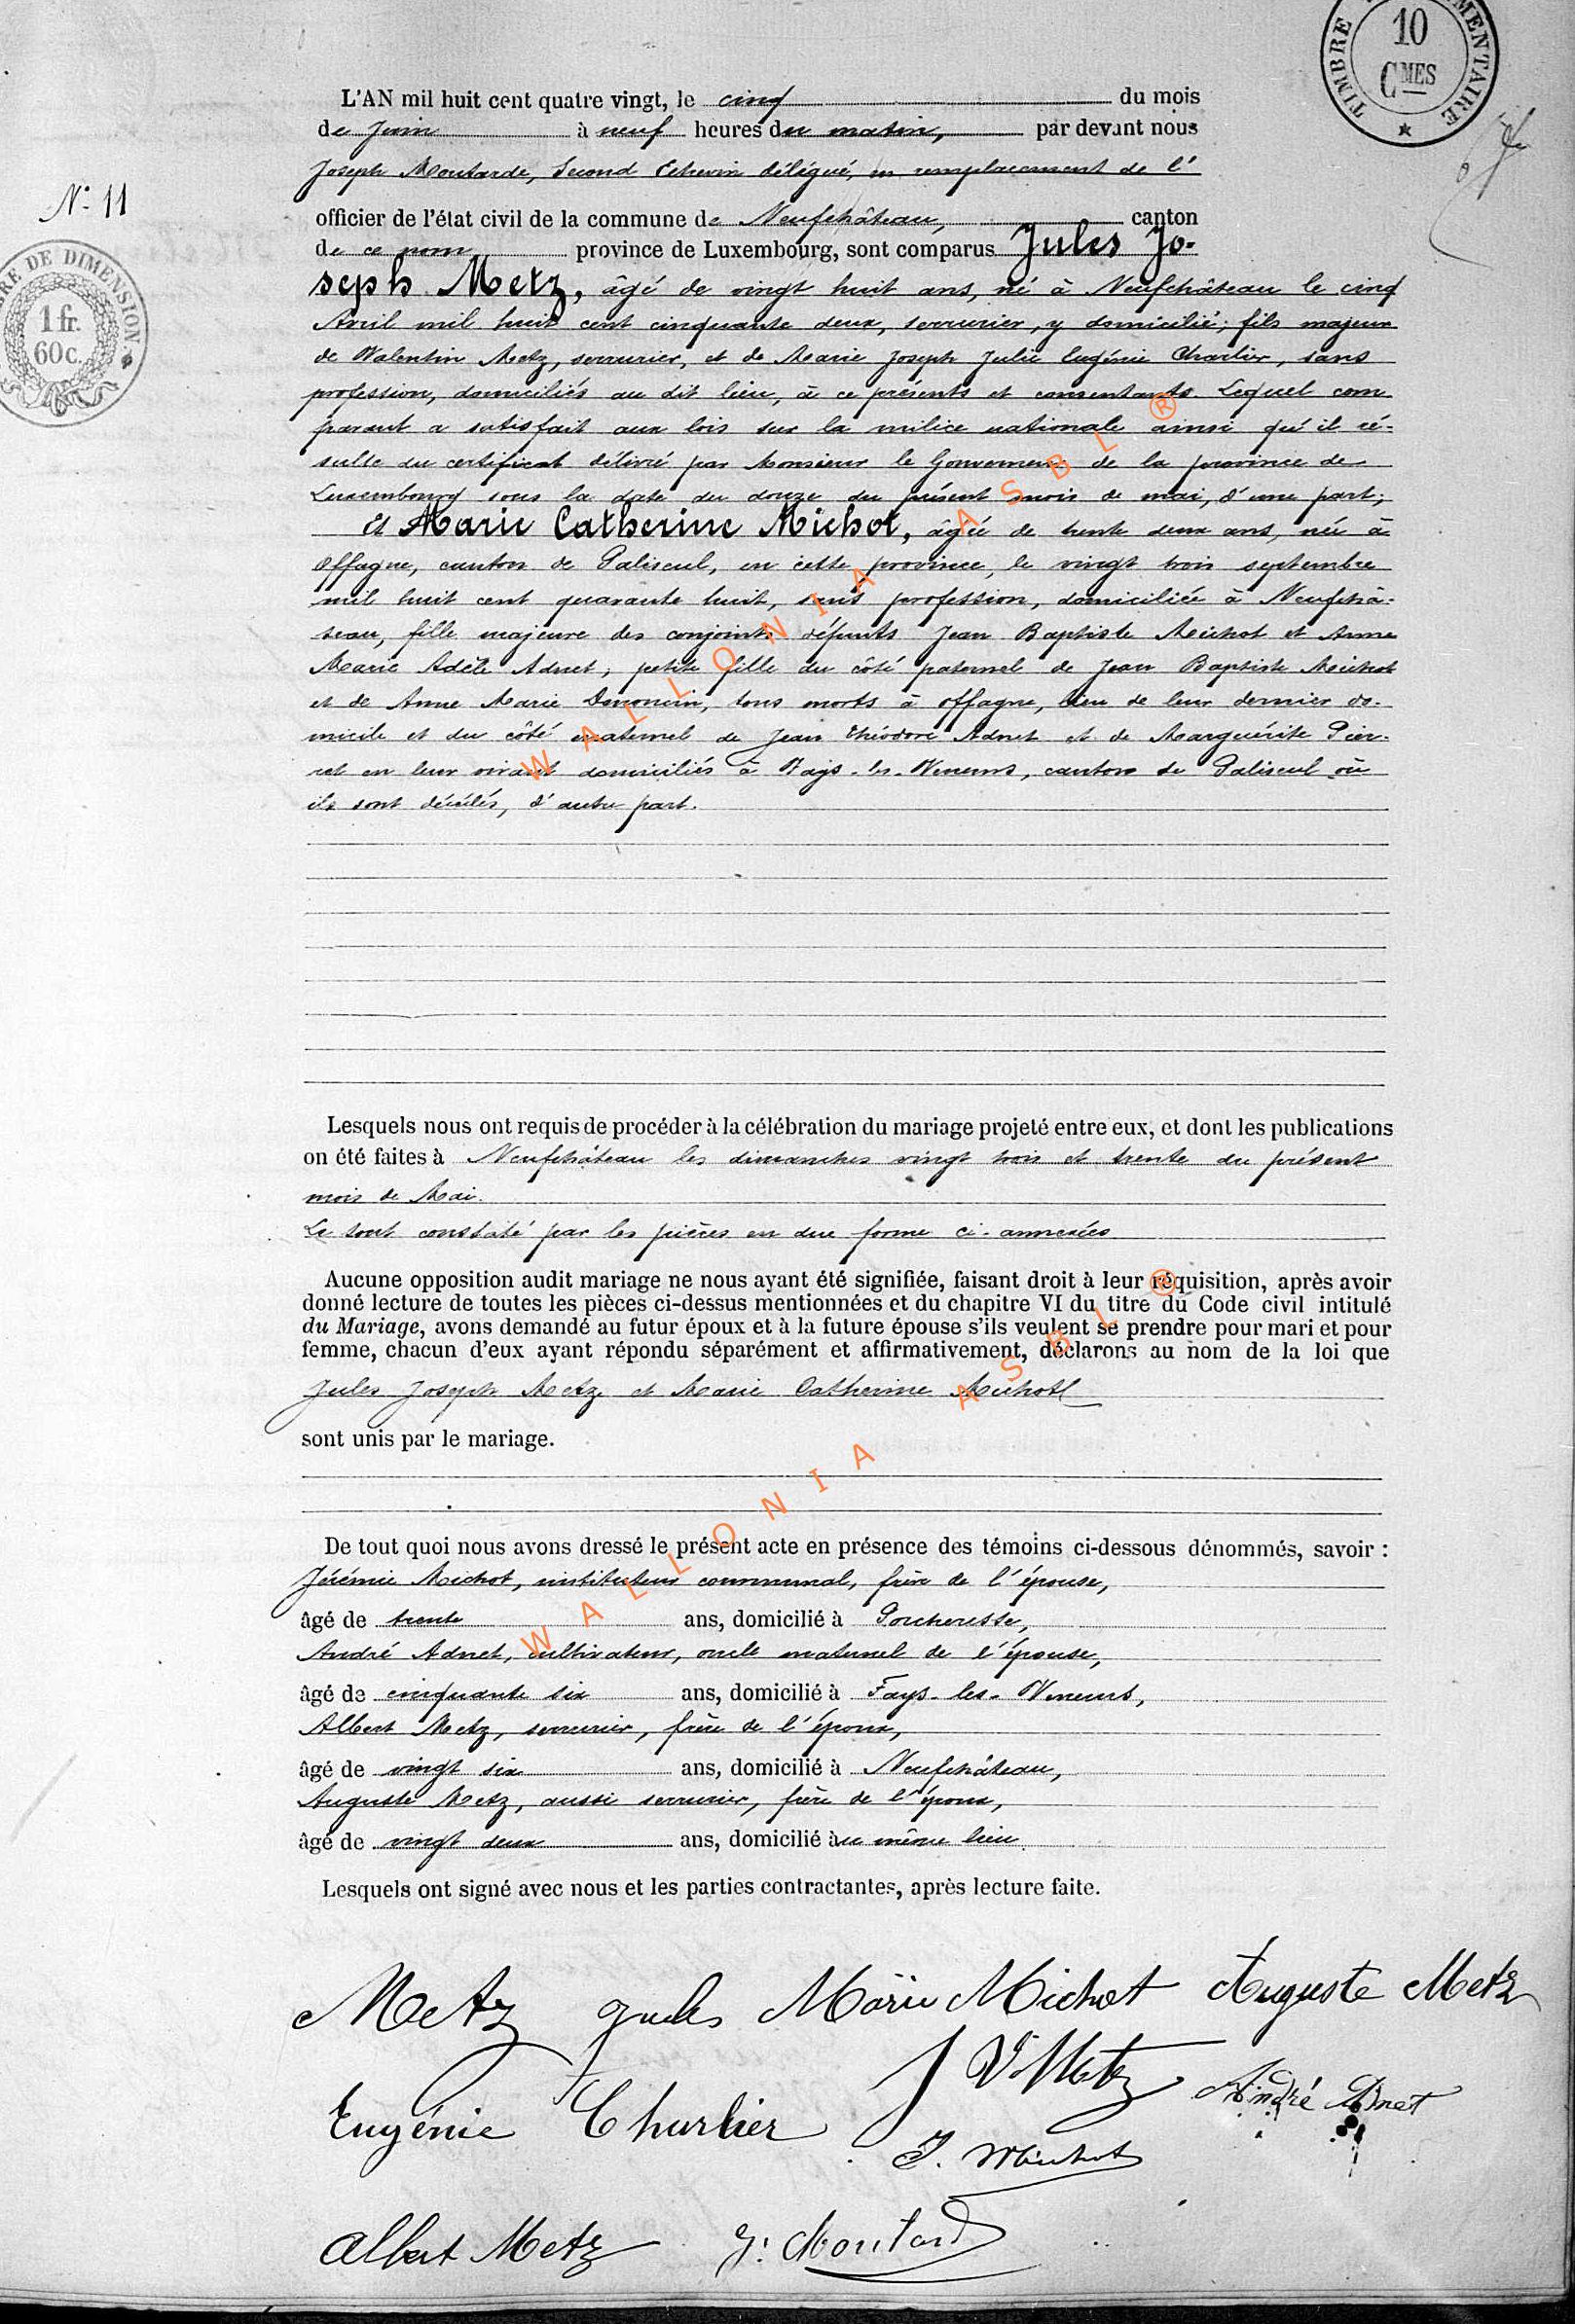 TIMBRE
MENTAIRE
10
CMES
L'AN mil huit cent quatre vingt, le cinq du mois
de Juin à neuf heures du matin, par devant nous
Joseph Moutarde, Second Echevin délégué, en remplacement de l'
N° 11
officier de l'état civil de la commune de Neufchâteau, canton
de ce nom province de Luxembourg, sont comparus Jules Jo-
seph Metz, âgé de vingt huit ans, né à Neufchâteau le cinq
Avril mil huit cent cinquante deux, serrurier, y domicilié; fils majeur
de Valentin Metz, serrurier, et de Marie Joseph Julie Eugénie Charlier, sans
profession, domiciliés au dit lieu, à ce présents et consentants. Lequel com
parant a satisfait aux lois sur la milice nationale ainsi qu'il ré-
sulte du certificat délivré par Monsieur le Gouverneur de la province de
Luxembourg sous la date du douze du présent mois de mai, d'une part;
Et Marie Catherine Michot, âgée de trente deux ans, née à
Offagne, canton de Paliseul, en cette province, le vingt trois septembre
mil huit cent quarante huit, sans profession, domiciliée à Neufchâ-
teau, fille majeure des conjoints défunts Jean Baptiste Michot et Anne
Marie Adèle Adnet, petite fille du côté paternel de Jean Baptiste Michot
et de Anne Marie tous morts à Offagne, lieu de leur dernier do-
micile et du côté maternel de Jean Théodore Adnet et de Marguérite Pier-
ret en leur vivant domiciliés à Fays-les-Veneurs, canton de Paliseul où
ils sont décédés, d'autre part.
RE DE DIMENSION
1 fr.
60c.
Lesquels nous ont requis de procéder à la célébration du mariage projeté entre eux, et dont les publications
on été faites à Neufchâteau les dimanches vingt trois et trente du présent
mois de Mai.
Le tout constaté par les pièces en due forme ci-annexées
Aucune opposition audit mariage ne nous ayant été signifiée, faisant droit à leur réquisition, après avoir
donné lecture de toutes les pièces ci-dessus mentionnées et du chapitre VI du titre du Code civil intitulé
du Mariage, avons demandé au futur époux et à la future épouse s'ils veulent se prendre pour mari et pour
femme, chacun d'eux ayant répondu séparément et affirmativement, déclarons au nom de la loi que
Jules Joseph Metz et Marie Catherine Michot
sont unis par le mariage.
De tout quoi nous avons dressé le présent acte en présence des témoins ci-dessous dénommés, savoir :
Jérémie Michot, instituteur communal, frère de l'épouse,
âgé de trente ans, domicilié à Porcheresse,
André Adnet, cultivateur, oncle maternel de l'épouse,
âgé de cinquante six ans, domicilié à Fays-les-Veneurs,
Albert Metz, serrurier, frère de l'époux,
âgé de vingt six ans, domicilié à Neufchâteau,
Auguste Metz, aussi serrurier, frère de l'époux,
âgé de vingt deux ans, domicilié au même lieu
Lesquels ont signé avec nous et les parties contractantes, après lecture faite.
Metz Jules Marie Michot Auguste Metz
J V Metz
André Adnet
Eugénie Charlier
J. Michot
Albert Metz J. Moutard
WALLONIA ASBL ®
WALLONIA ASBL ®